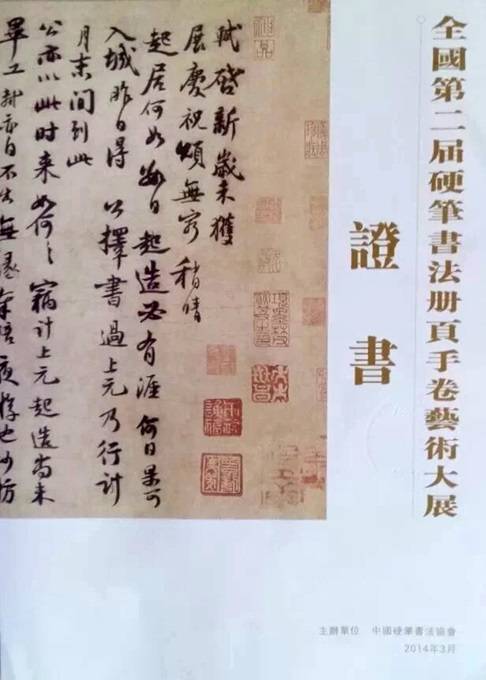 全國第二届硬筆書法册頁手卷藝術大展
證書
軾啓新歲未獲
展慶祝頌無窮稍晴
起居何如數日起造必有涯何日果可
入城昨日得公擇書過上元乃行計
月末間到此
公亦以此时来如何々竊計上元起造尚未
畢工軾亦自不出無緣奉陪夜遊也沙枋
主辦單位 中國硬筆書法協會
2014年3月